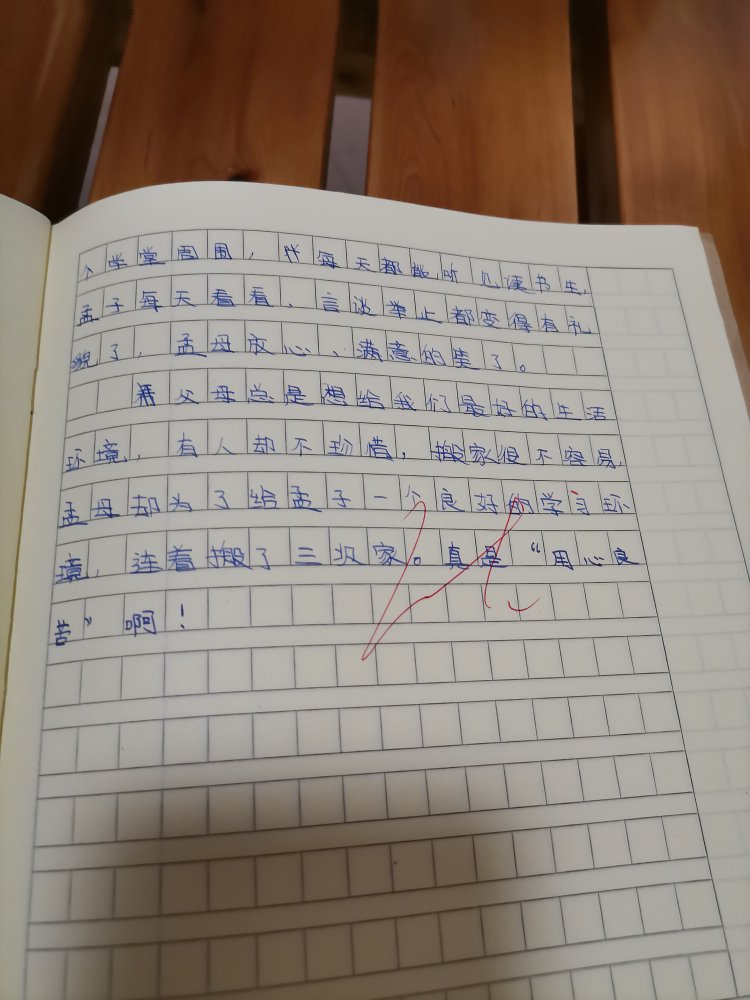 个学堂周围，每天都能听见读书生，
孟子每天看看，言谈举止都变得有礼
貌了，孟母放心、满意的笑了。
父母总是想给我们最好的生活
环境，有人却不珍惜，搬家很不容易，
孟母却为了给孟子一个良好的学习环
境，连着搬了三次家。真是“用心良
苦”啊！